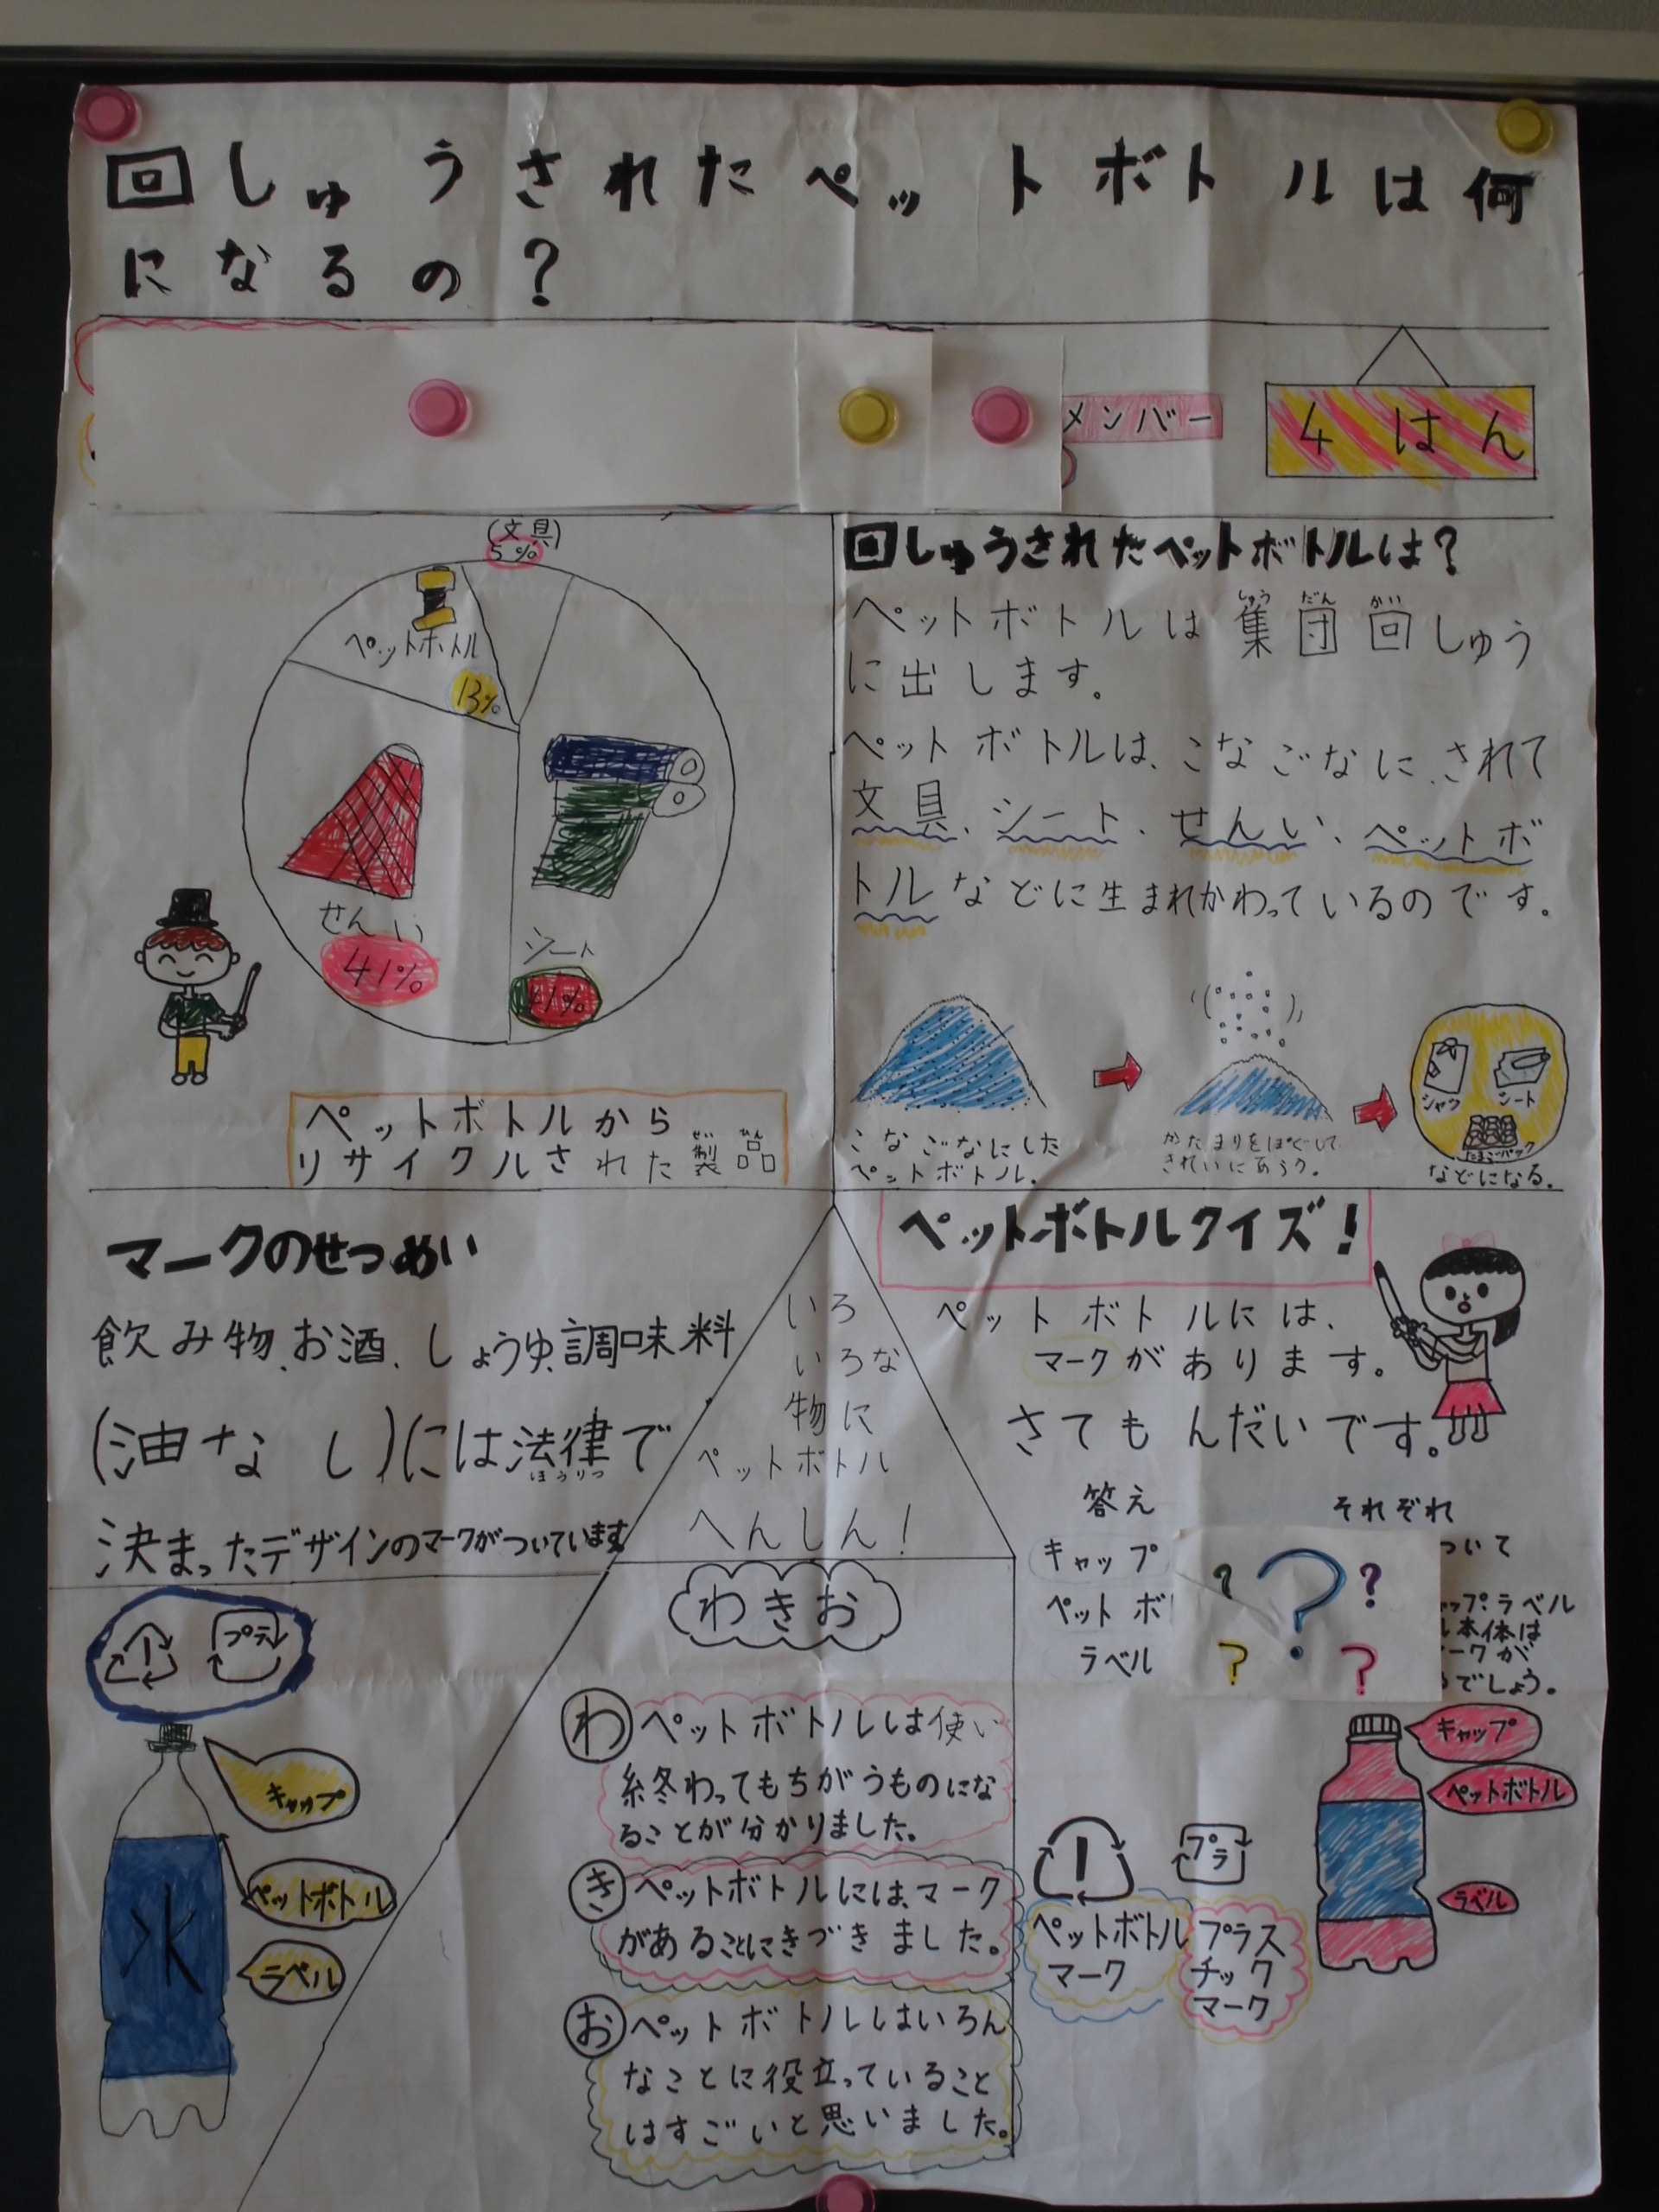 回しゅうされたペットボトルは何
になるの？
メンバー
4はん
(文具)
5%
ペットボトル
13%
せんい
41%
シート
41%
ペットボトルから
リサイクルされた製品
せい ひん
回しゅうされたペットボトルは？
しゅう だん かい
ペットボトルは集団回しゅう
に出します。
ペットボトルは、こなごなに、されて
文具、シート、せんい、ペットボ
トルなどに生まれかわっているのです。
こなごなにした
ペットボトル。
かたまりをほぐして
きれいにあらう。
シャツ
シート
たまごパック
などになる。
マークのせつめい
飲み物、お酒、しょうゆ、調味料
(油なし)には法律で
ほうりつ
決まったデザインのマークがついています。
1
プラ
キャップ
ペットボトル
ラベル
水
いろ
いろな
物に
ペットボトル
へんしん！
わきお
わ ペットボトルは使い
終わってもちがうものにな
ることが分かりました。
き ペットボトルには、マーク
があることにきづきました。
お ペットボトルはいろん
なことに役立っていること
はすごいと思いました。
ペットボトルクイズ！
ペットボトルには、
マークがあります。
さてもんだいです。
答え
キャップ
ペットボ
ラベル
? ? ? ? ?
それぞれ
ついて
ップ、ラベル
本体は
ークが
でしょう。
キャップ
ペットボトル
ラベル
1
ペットボトル
マーク
プラ
プラス
チック
マーク